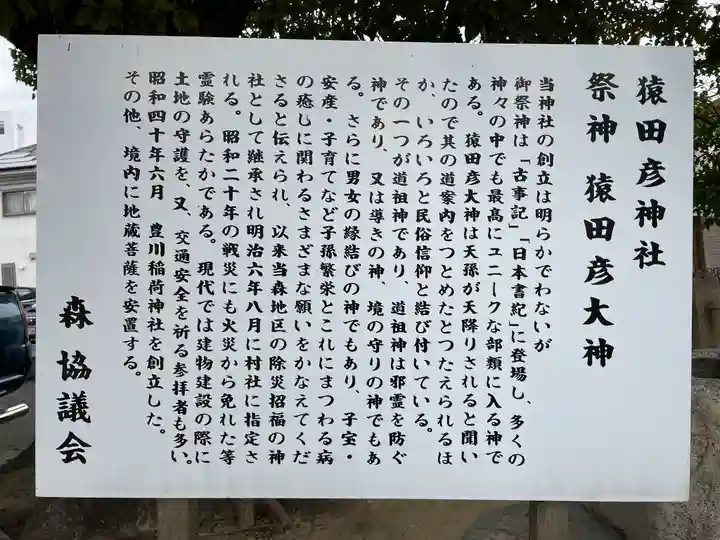 猿田彦神社
祭神 猿田彦大神
当神社の創立は明らかでわないが
御祭神は「古事記」「日本書紀」に登場し、多くの
神々の中でも最高にユニークな部類に入る神で
ある。 猿田彦大神は天孫が天降りされると聞い
たので其の道案内をつとめたとつたえられるほ
か、いろいろと民俗信仰と結び付いている。
その一つが道祖神であり、道祖神は邪霊を防ぐ
神であり、又は導きの神、境の守りの神でもあ
る。 さらに男女の縁結びの神でもあり、子宝・
安産・子育てなど子孫繁栄とこれにまつわる病
の癒しに関わるさまざまな願いをかなえてくだ
さると伝えられ、以来当森地区の除災招福の神
社として継承され明治六年八月に村社に指定さ
れる。 昭和二十年の戦災にも火災から免れた等
霊験あらたかである。 現代では建物建設の際に
土地の守護を、又、交通安全を祈る参拝者も多い。
昭和四十年六月 豊川稲荷神社を創立した。
その他、境内に地蔵菩薩を安置する。
森協議会